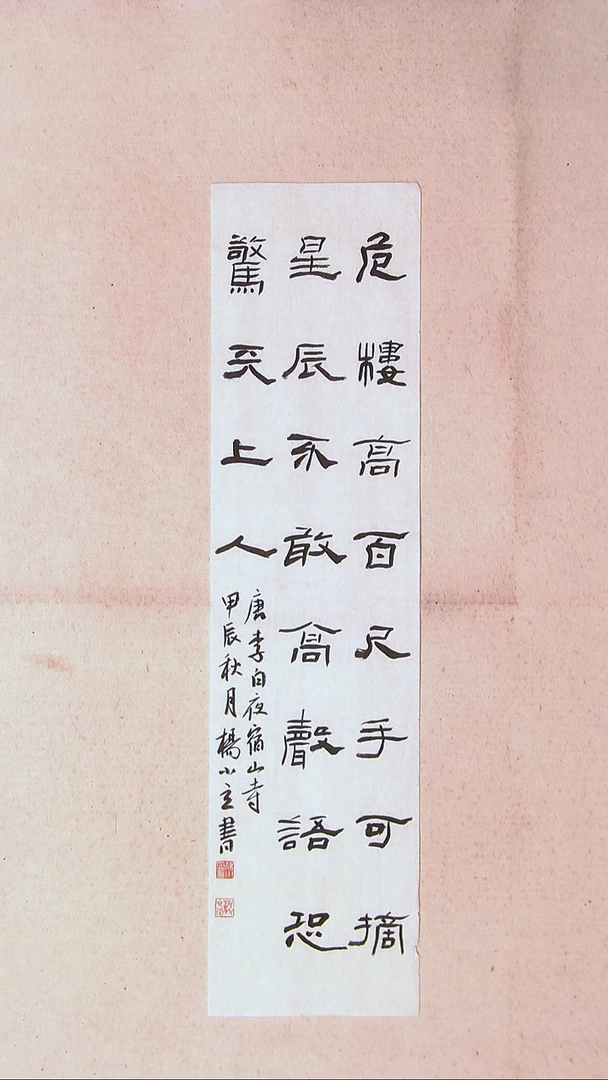 危樓高百尺手可摘
星辰不敢高聲語恐
驚天上人
唐李白夜宿山寺
甲辰秋月楊小立書